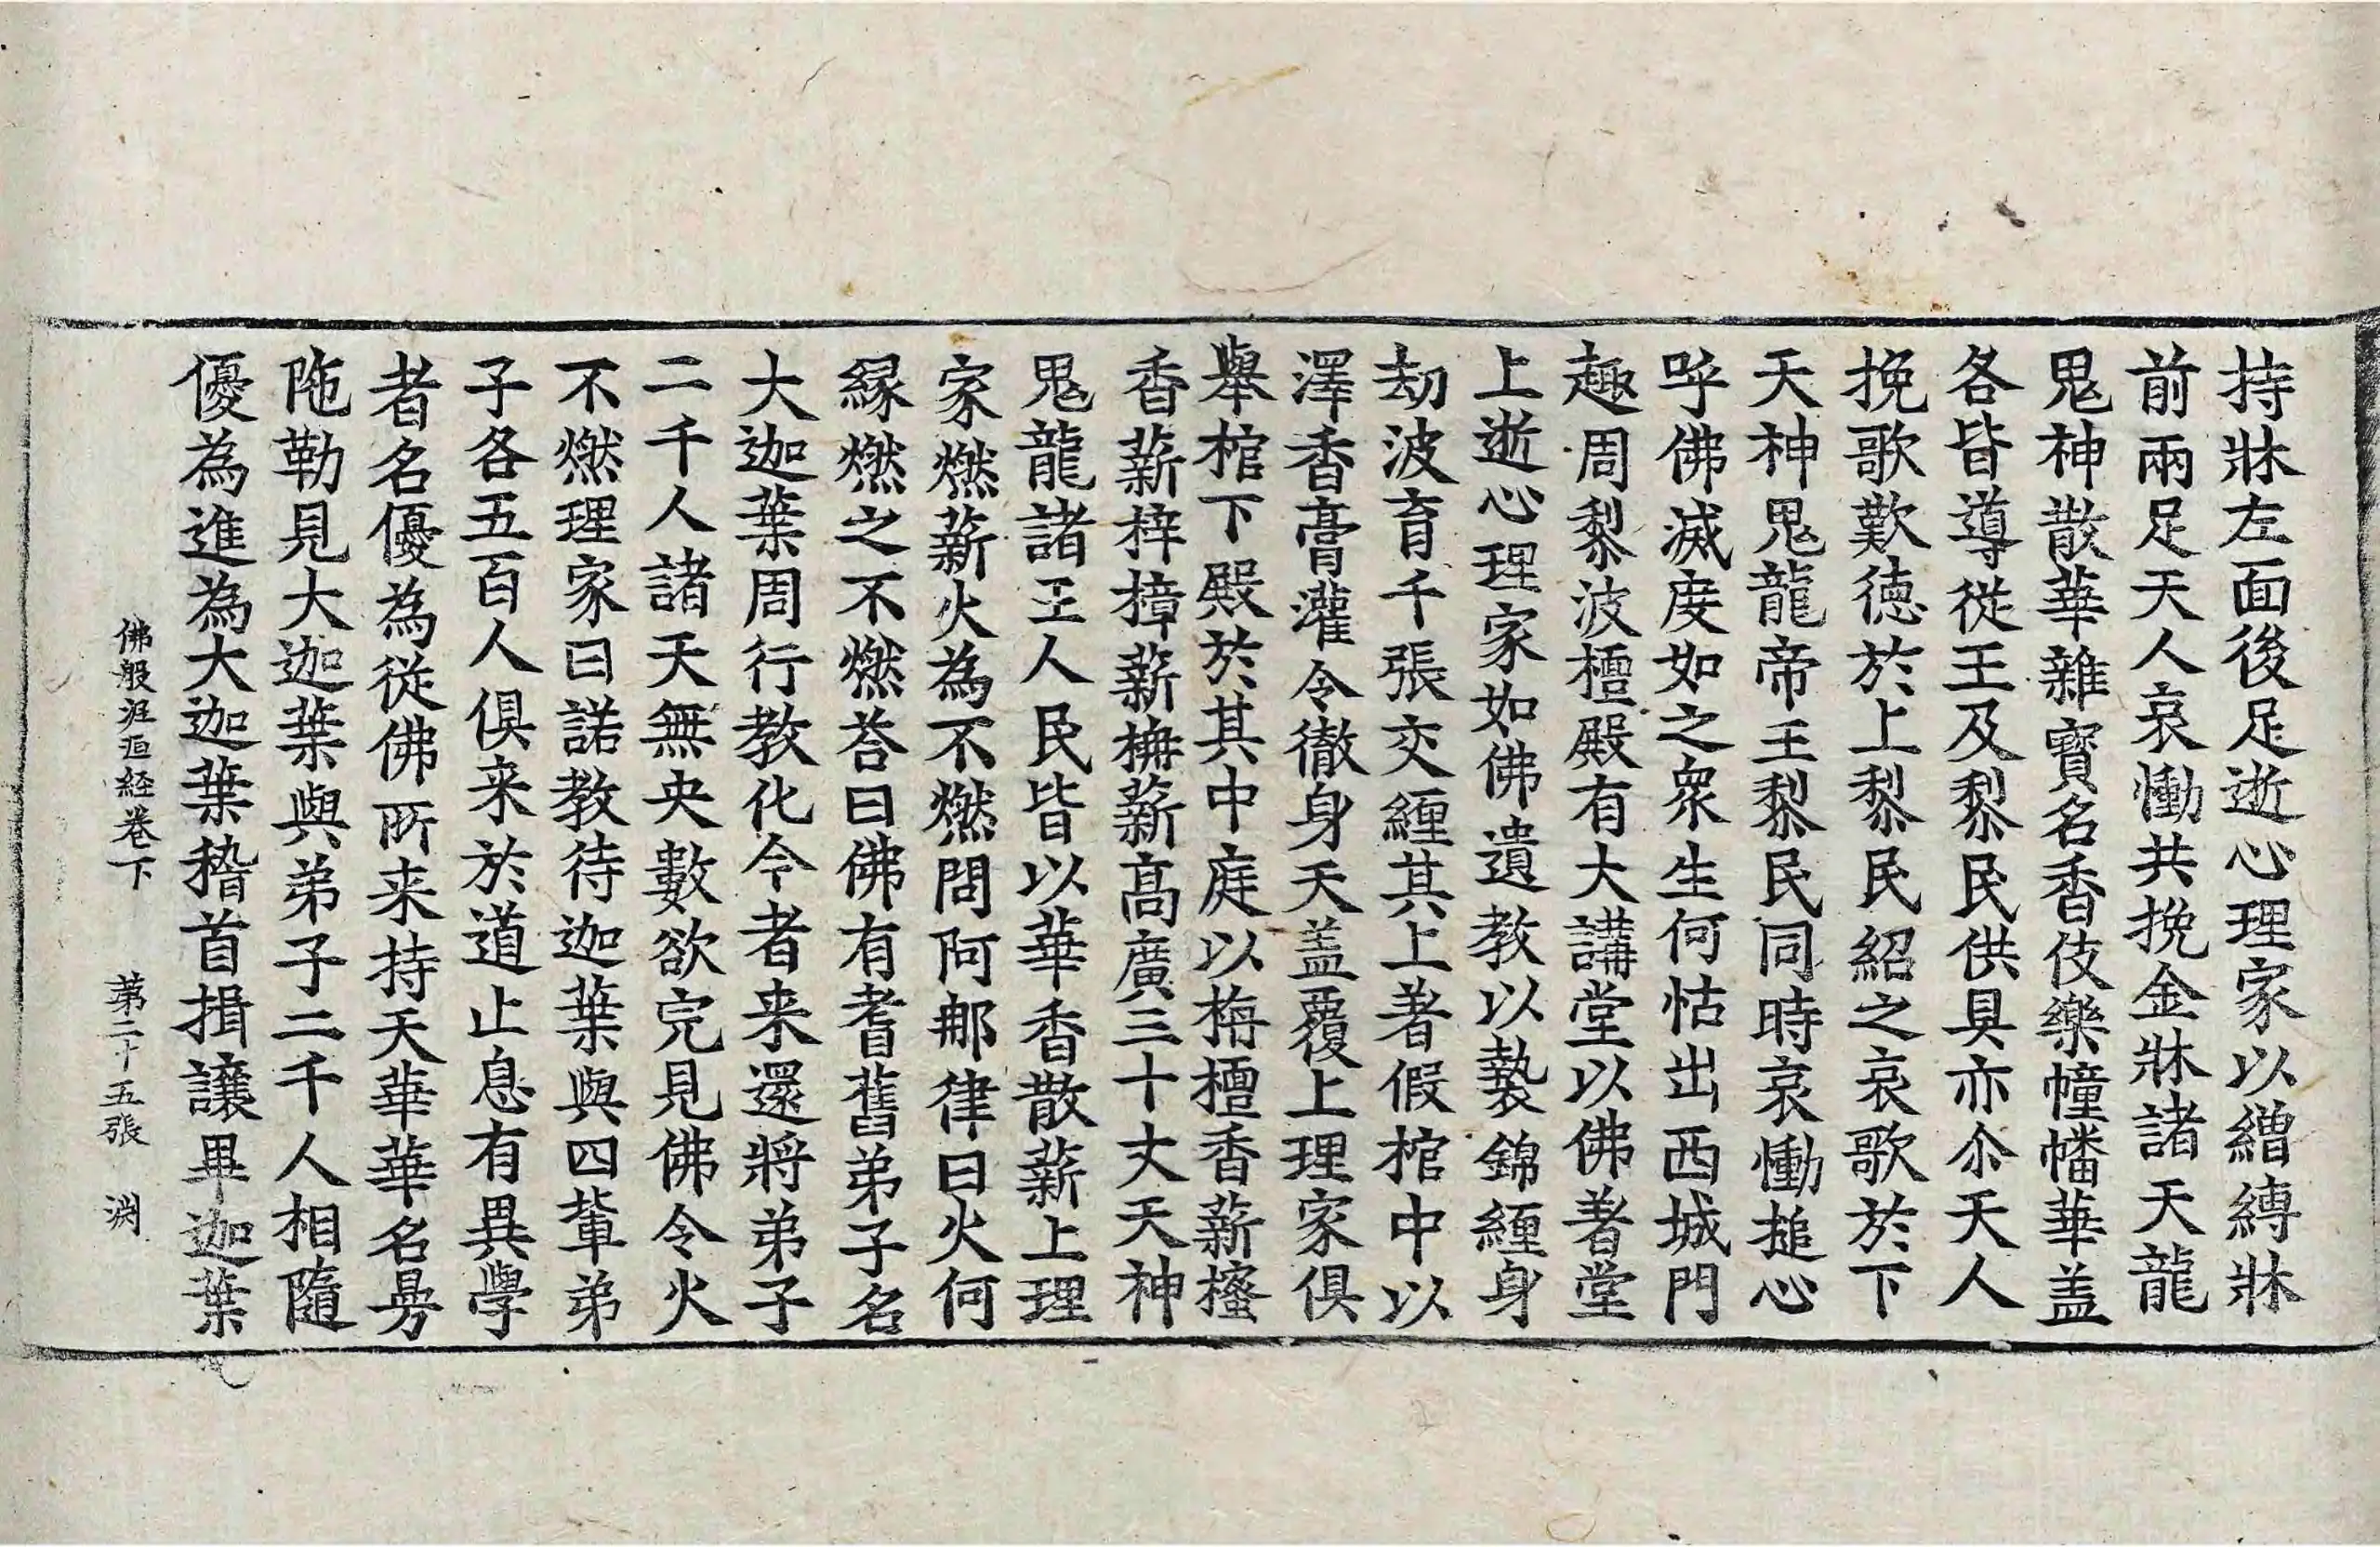 持牀左面後足逝心理家以繒縛牀
前兩足天人哀慟共挽金牀諸天龍
鬼神散華雜寶名香伎樂幢幡華盖
各皆導從王及黎民供具亦尒天人
挽歌歎德於上黎民紹之哀歌於下
天神鬼龍帝王黎民同時哀慟搥心
呼佛滅度如之衆生何怙出西城門
趣周黎波檀殿有大講堂以佛著堂
上逝心理家如佛遺教以褻錦纏身
劫波育千張交纏其上著假棺中以
澤香膏灌令徹身天盖覆上理家俱
舉棺下殿於其中庭以栴檀香薪櫁
香薪梓樟薪栴薪高廣三十丈天神
鬼龍諸王人民皆以華香散薪上理
家燃薪火為不燃問阿那律曰火何
緣燃之不燃荅曰佛有耆舊弟子名
大迦葉周行教化今者来還將弟子
二千人諸天無央數欲完見佛令火
不燃理家曰諾教待迦葉與四輩弟
子各五百人俱来於道止息有異學
者名優為從佛所来持天華華名曼
陁勒見大迦葉與弟子二千人相隨
優為進為大迦葉稽首揖讓畢迦葉
佛般泥洹經卷下 第二十五張 渕